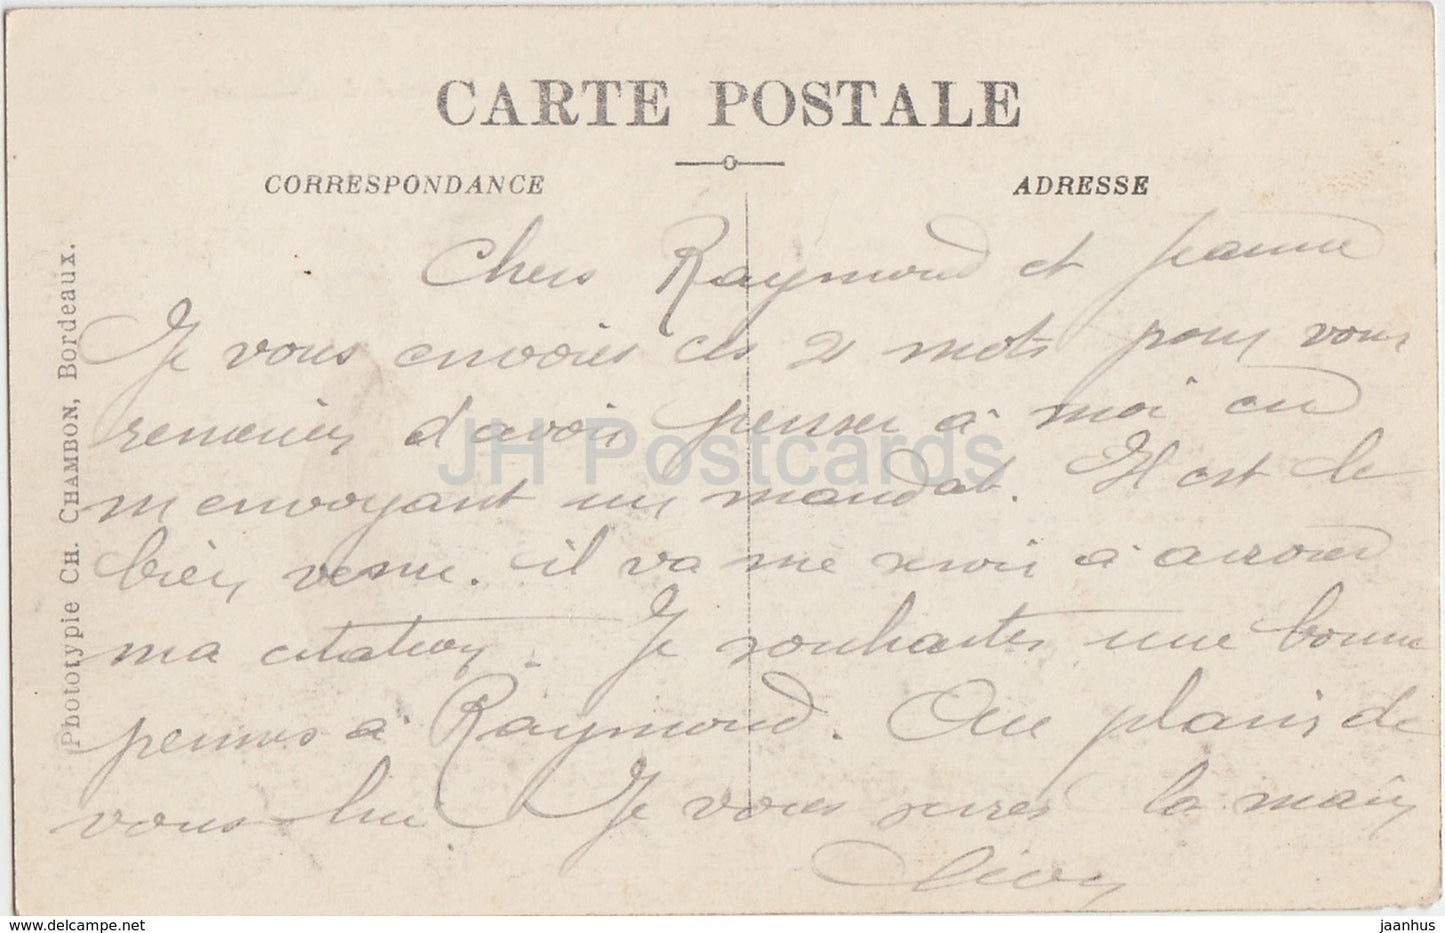 CARTE POSTALE
CORRESPONDANCE
ADRESSE
Phototypie CH. CHAMBON, Bordeaux.
Chers Raymond et Jeanne
Je vous envoies ces 2 mots pour vous
d'avoir penser à moi en
m'envoyant un mandat. Il est le
bien venu. il va me servir à arroser
ma citation. Je souhaites une bonne
à Raymond. Que plaris de
vous lui Je vous serres la main
JH Postcards
delcampe.net
jaanhus